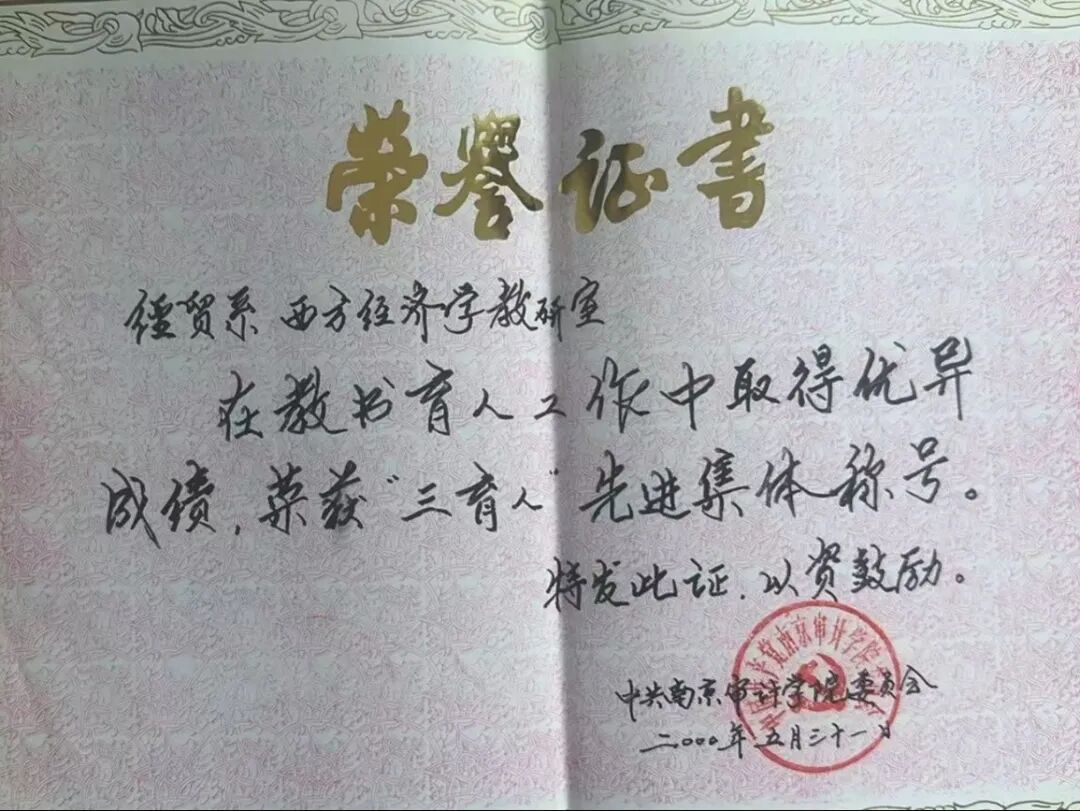 荣誉证书
经贸系 西方经济学教研室
在教书育人工作中取得优异
成绩,荣获"三育人"先进集体称号。
特发此证,以资鼓励。
中共南京审计学院委员会
二〇〇〇年五月三十一日
中国共产党南京审计学院委员会